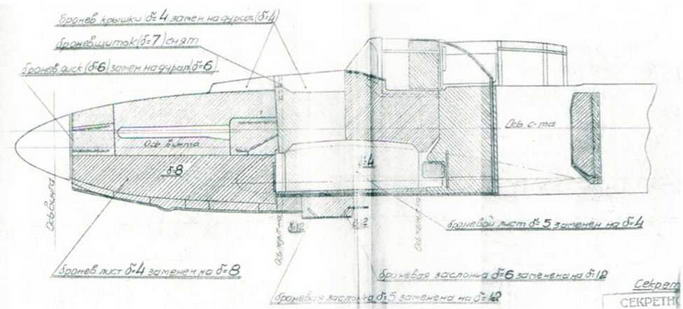 бронев. крышки δ=4 замен на дурал (δ=4)
бронев. щиток (δ=7) снят
бронев диск (δ=6) замен на дурал (δ=6)
Ось с-та
Ось винта
δ=8
δ=4
броневой лист δ=5 заменен на δ=4
бронев лист δ=4 заменен на δ=8
броневая заслонка δ=6 заменена на δ=12
броневая заслонка δ=5 заменена на δ=12
Секрет
СЕКРЕТНО